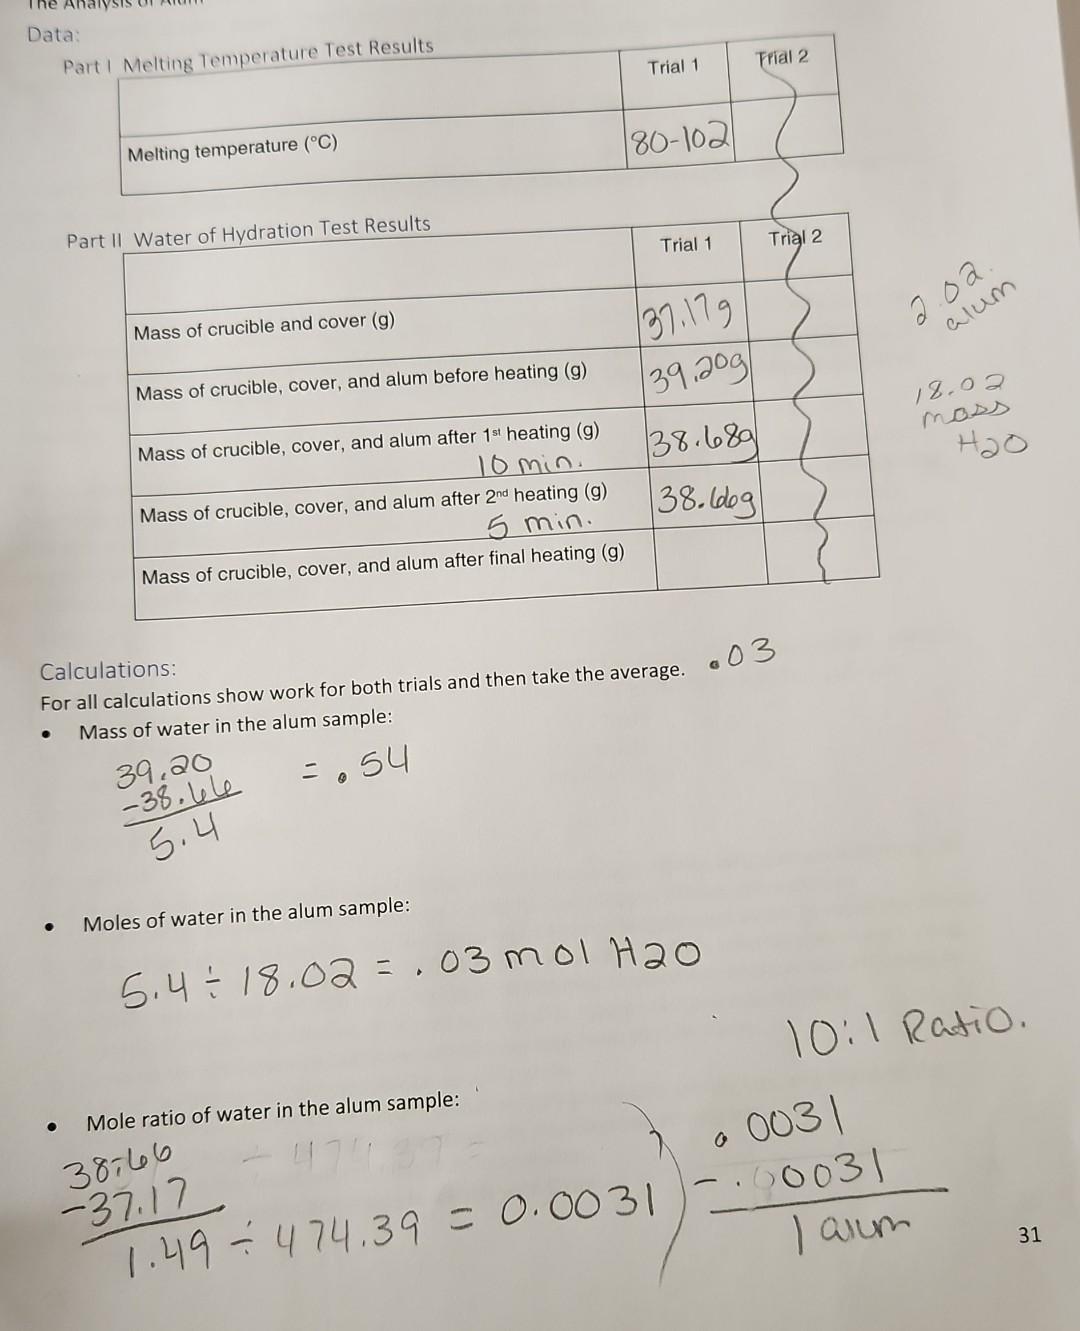 The Analysis of Alum
Data:
Part I Melting Temperature Test Results
Trial 1 Trial 2
Melting temperature (°C) 80-102
Part II Water of Hydration Test Results
Trial 1 Trial 2
Mass of crucible and cover (g) 37.17g
Mass of crucible, cover, and alum before heating (g) 39.20g
Mass of crucible, cover, and alum after 1st heating (g) 38.68g
10 min.
Mass of crucible, cover, and alum after 2nd heating (g) 38.66g
5 min.
Mass of crucible, cover, and alum after final heating (g)
2.02
alum
18.02
mass
H2O
Calculations:
For all calculations show work for both trials and then take the average. .03
• Mass of water in the alum sample:
39.20 = .54
-38.66
5.4
• Moles of water in the alum sample:
5.4 ÷ 18.02 = .03 mol H2O
10:1 Ratio.
• Mole ratio of water in the alum sample:
38.66 ÷ 474.39 =
-37.17
1.49 ÷ 474.39 = 0.0031
.0031
-.00031
1 alum
31